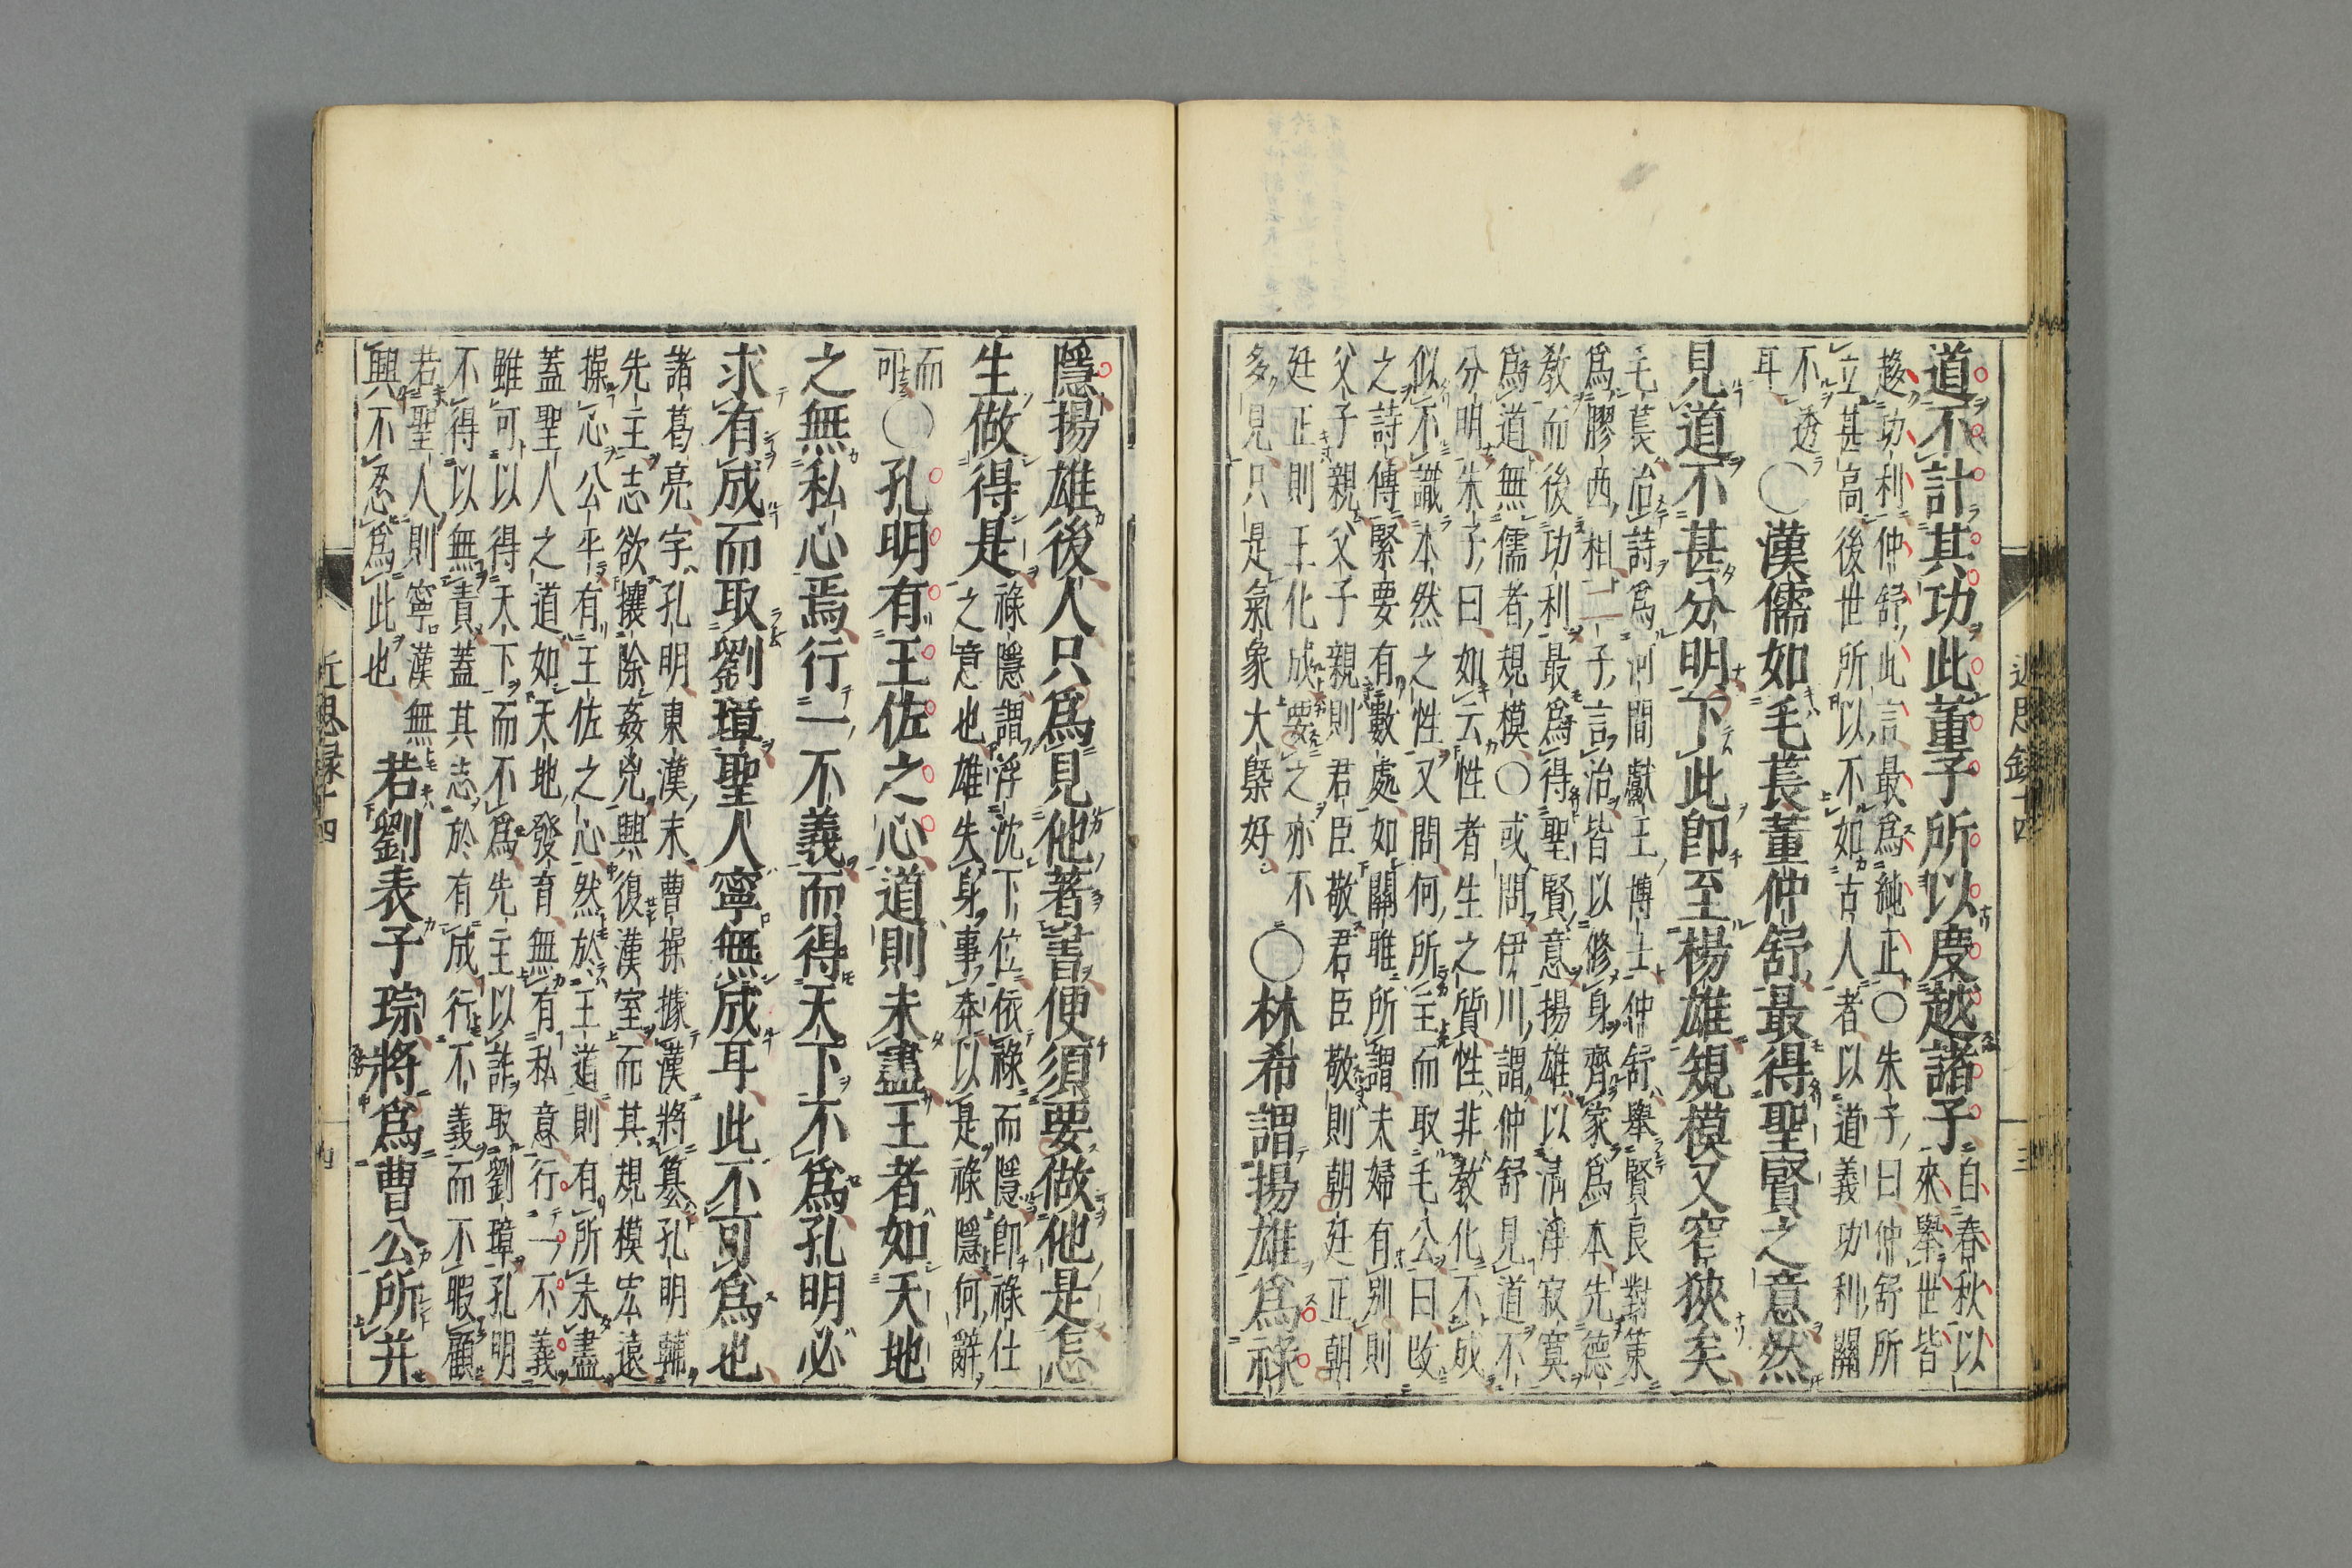 道不計其功此董子所以度越諸子自春秋以
來舉世皆
趍功利仲舒此言最爲純正〇朱子曰仲舒所
立甚高後世所以不如古人者以道義功利關
不透
耳
〇漢儒如毛萇董仲舒最得聖賢之意然
見道不甚分明下此即至楊雄規模又窄狹矣
毛萇治詩爲河間獻王博士仲舒舉賢良對策
爲膠西相二子言治皆以修身齊家爲本先德
教而後功利最爲得聖賢意揚雄以淸淨寂寞
爲道無儒者規模〇或問伊川謂仲舒見道不
分明朱子曰如云性者生之質性非教化不成
似不識本然之性又問何所主而取毛公曰攷
之詩傳緊要有數處如關雎所謂夫婦有別則
父子親父子親則君臣敬君臣敬則朝廷正朝
廷正則王化成要之亦不
多見只是氣象大槩好
〇林希謂揚雄爲祿
隱揚雄後人只爲見他著書便須要做他是怎
生做得是祿隱謂浮沈下位依祿而隱即祿仕
之意也雄失身事莽以是祿隱何辭
而
可
〇孔明有王佐之心道則未盡王者如天地
之無私心焉行一不義而得天下不爲孔明必
求有成而取劉璋聖人寧無成耳此不可爲也
諸葛亮字孔明東漢末曹操據漢將簒孔明輔
先主志欲攘除姦兇興復漢室而其規模宏遠
操心公平有王佐之心然於王道則有所未盡
蓋聖人之道如天地發育無有私意行一不義
雖可以得天下而不爲先主以詐取劉璋孔明
不得以無責蓋其志於有成行不義而不暇顧
若聖人則寧漢無
興不忍爲此也
若劉表子琮將爲曹公所并
近思錄十四
三
近思錄十四
四